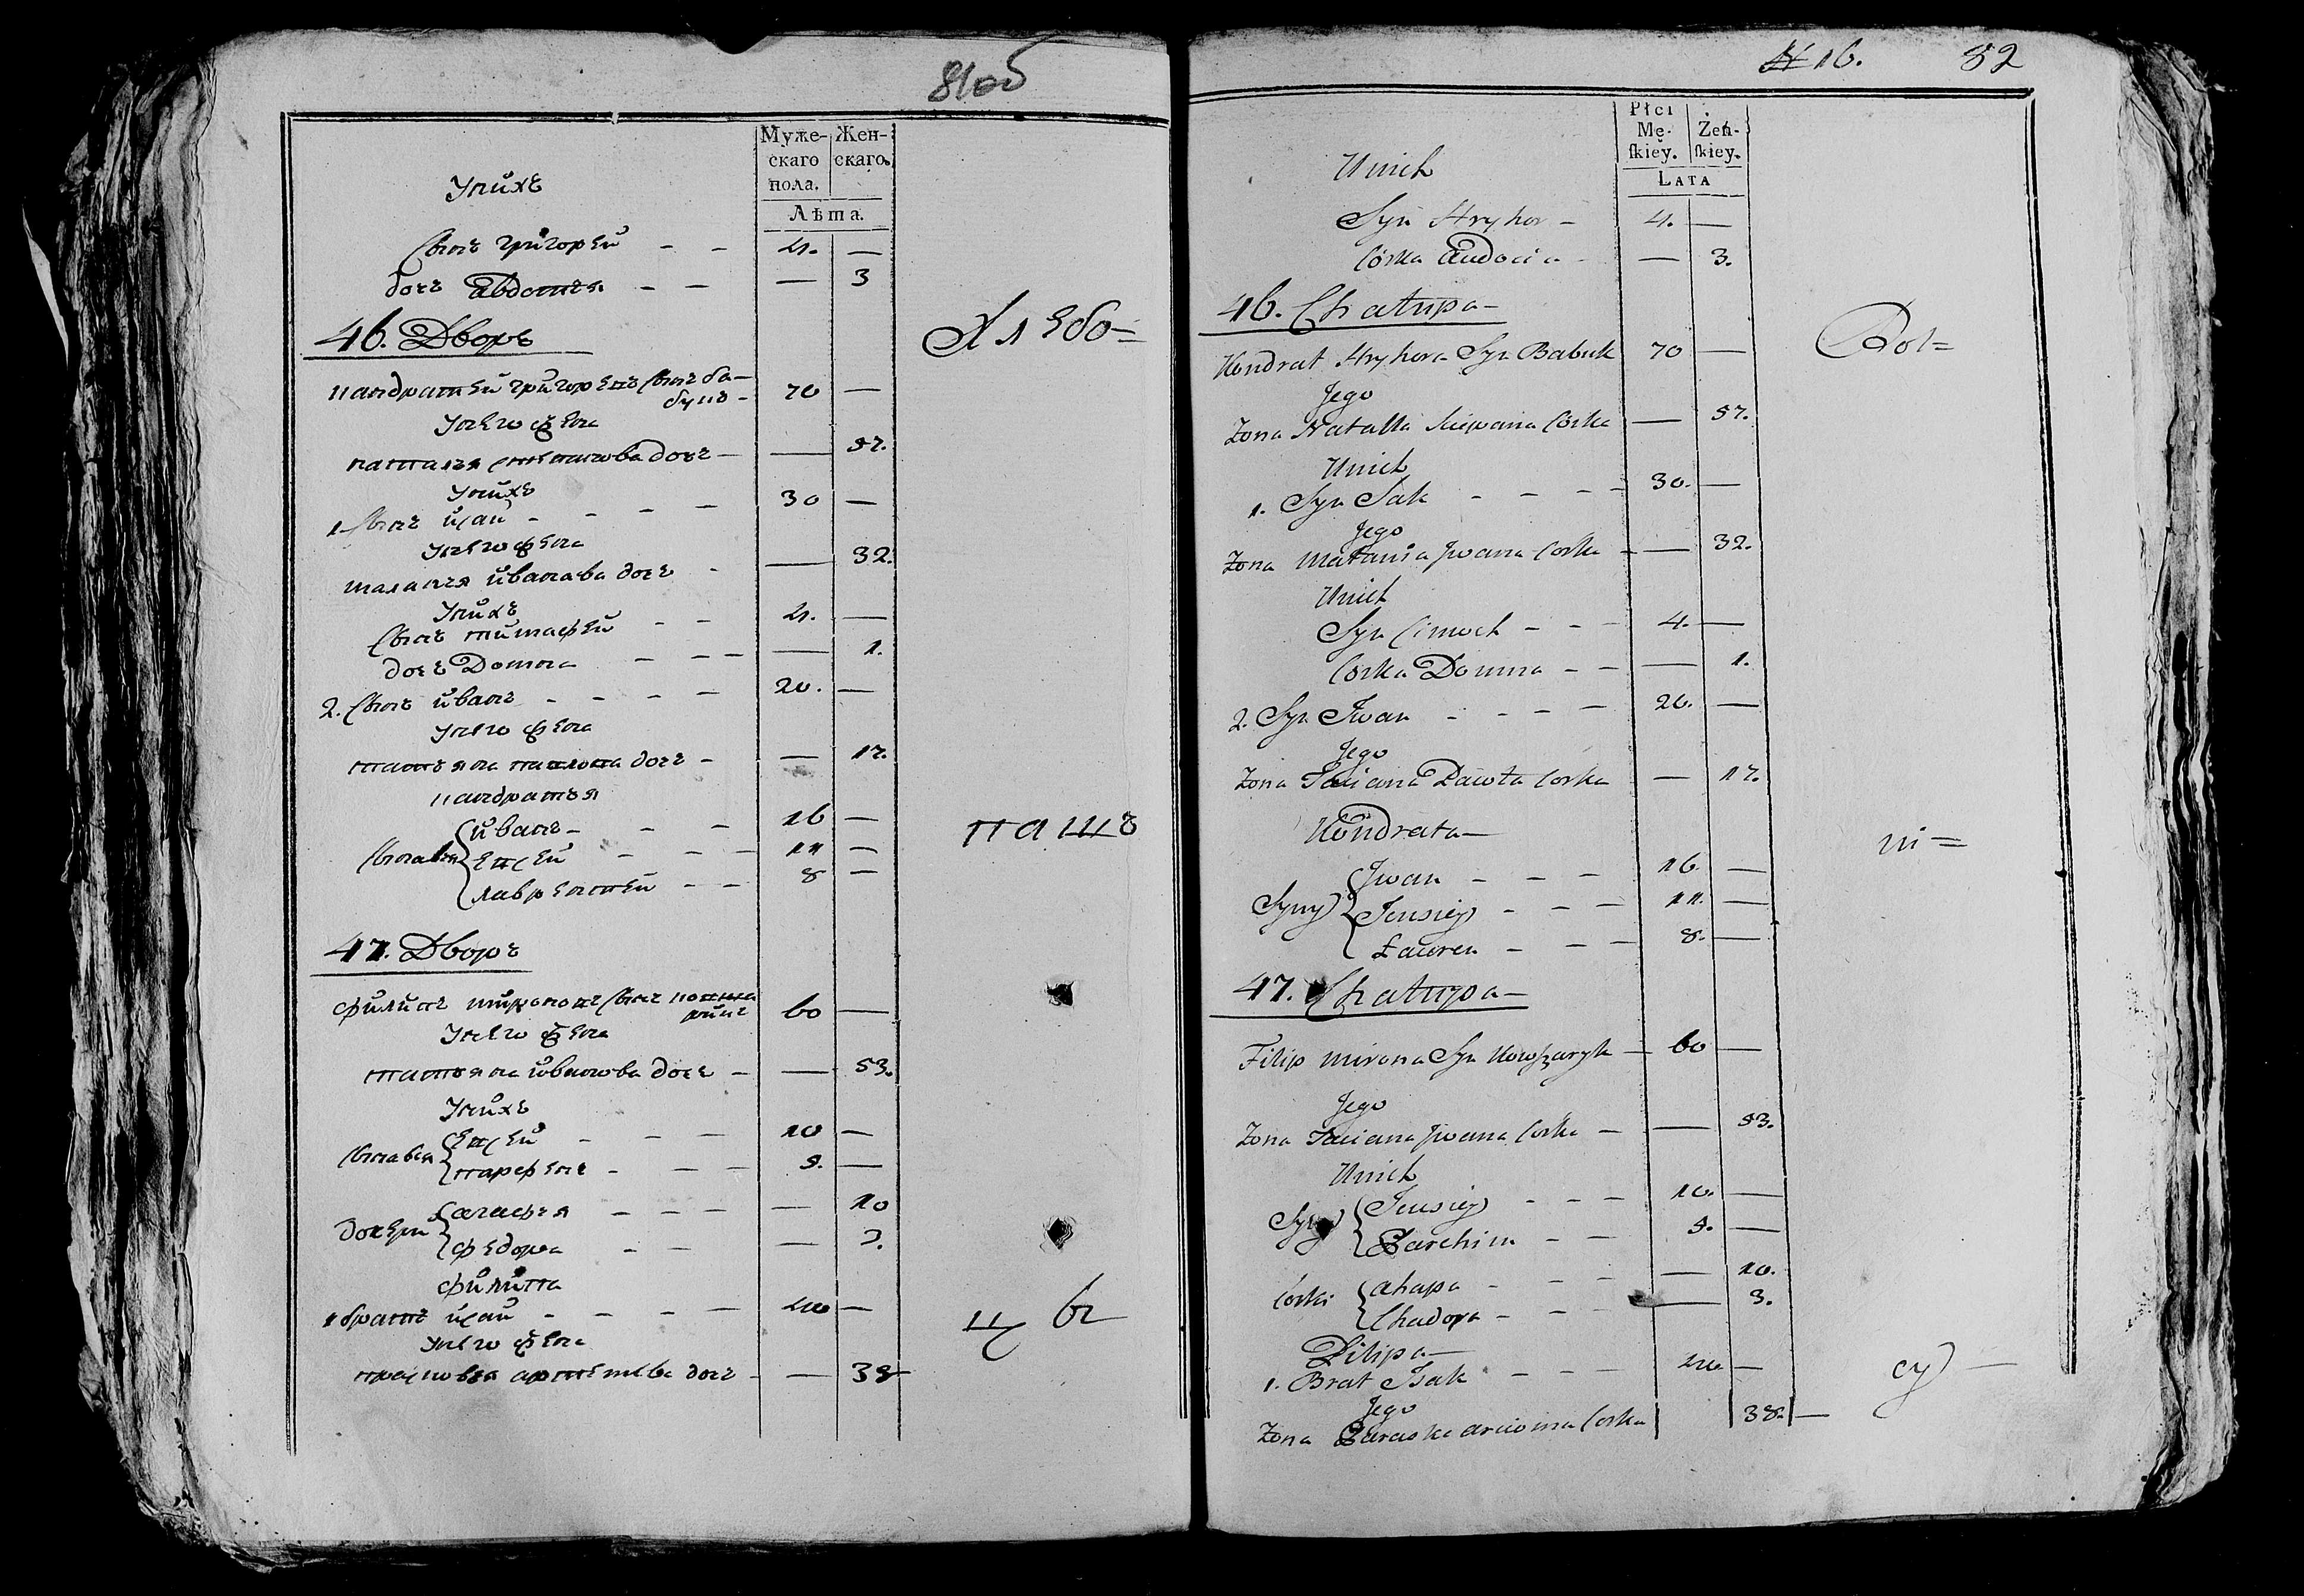 81об
Муже-
скаго
пола.
Жен-
скаго.
Лѣта.
Унихъ
Сынъ григорей - - 4. —
дочь Авдотья - - — 3
46. Дворъ
Хлѣбо=
кандратей григорьевъ Сынъ ба-
букъ - 70 —
Унего жена
наталья степанова дочь — — 57.
Унихъ
1. Сынъ исай - - - - 30 —
Унего жена
маланья иванава дочь - — 32.
Унихъ
Сынъ тимафей - - 4. —
дочь Домна - - - — 1.
2. Сынъ иванъ - - - - 20. —
Унего жена
татьяна павлова дочь - — 17.
кандратья
пашъ
Сынавья
иванъ - - - 16 —
евсей - - - 11 —
лаврентей - - 8 —
47. Дворъ
филипъ миронавъ Сынъ
60 —
Унего жена
татьяна иванова дочь - — 53.
Унихъ
Сынавья
евсей - - - 10 —
парфенъ - - - 5. —
дочери
агафья - - - — 10
федора - - — 3.
филипа
цы
1 братъ исай - - - - 40 —
Унего жена
прасковья артемьева дочь - — 38
№ 16. 82
Płci
Mę-
ſkiey.
Żeń-
ſkiey.
LATA
Unich
Syn Hryhor - 4. —
Córka Audocia - — 3.
46. Chatupa —
Rol=
Kondrat Hryhora Syn Babuk 70 —
Jego
Zona Natalla Sciepana Córka — 57.
Unich
1. Syn Isak - - - - 30. —
Jego
Zona Małania Jwana Corka - — 32.
Unich
Syn Cimoch - - - 4. —
Corka Domna - - — 1.
2. Syn Jwan - - - - 20. —
Jego
Zona Taciana Pawła Corka — 17.
Kondrata —
ni=
Syny
Jwan - - - 16. —
Jeusiey - - - 11. —
Łauren - - - 8. —
47. Chatupa —
Filip Mirona Syn Kowszaryk - 60 —
Jego
Zona Taciana Jwana Corka - — 53.
Unich
Syny
Jeusiey - - - 10. —
Parchim - - 5. —
Corki
Ahapa - - - — 10.
Chadora - - - — 3.
Filipa —
cy
1. Brat Isak - - - 40 —
Jego
Zona Paraska Arcioma Corka 38. —